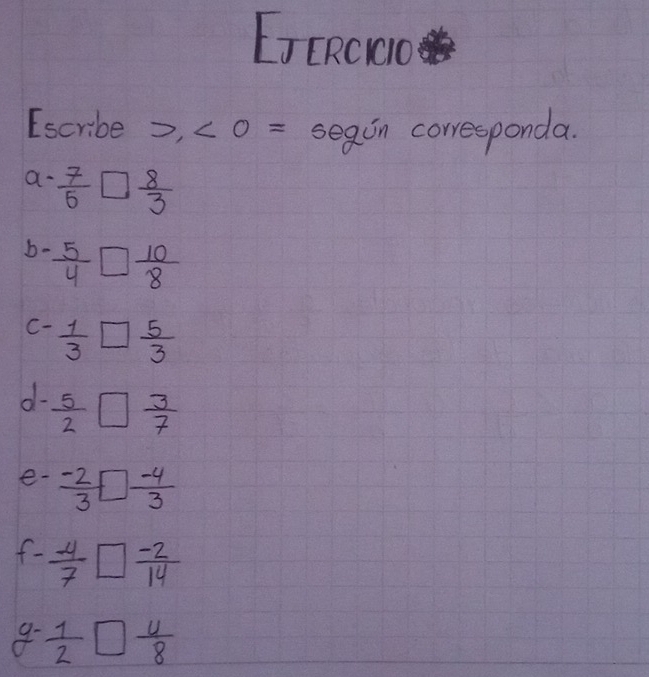 EJERCICIO
Escribe >, < o = según corresponda.
a- 7/5 □ 8/3
b- 5/4 □ 10/8
c- 1/3 □ 5/3
d- 5/2 □ 3/7
e- -2/3 □ -4/3
f- -4/7 □ -2/14
g- 1/2 □ 4/8